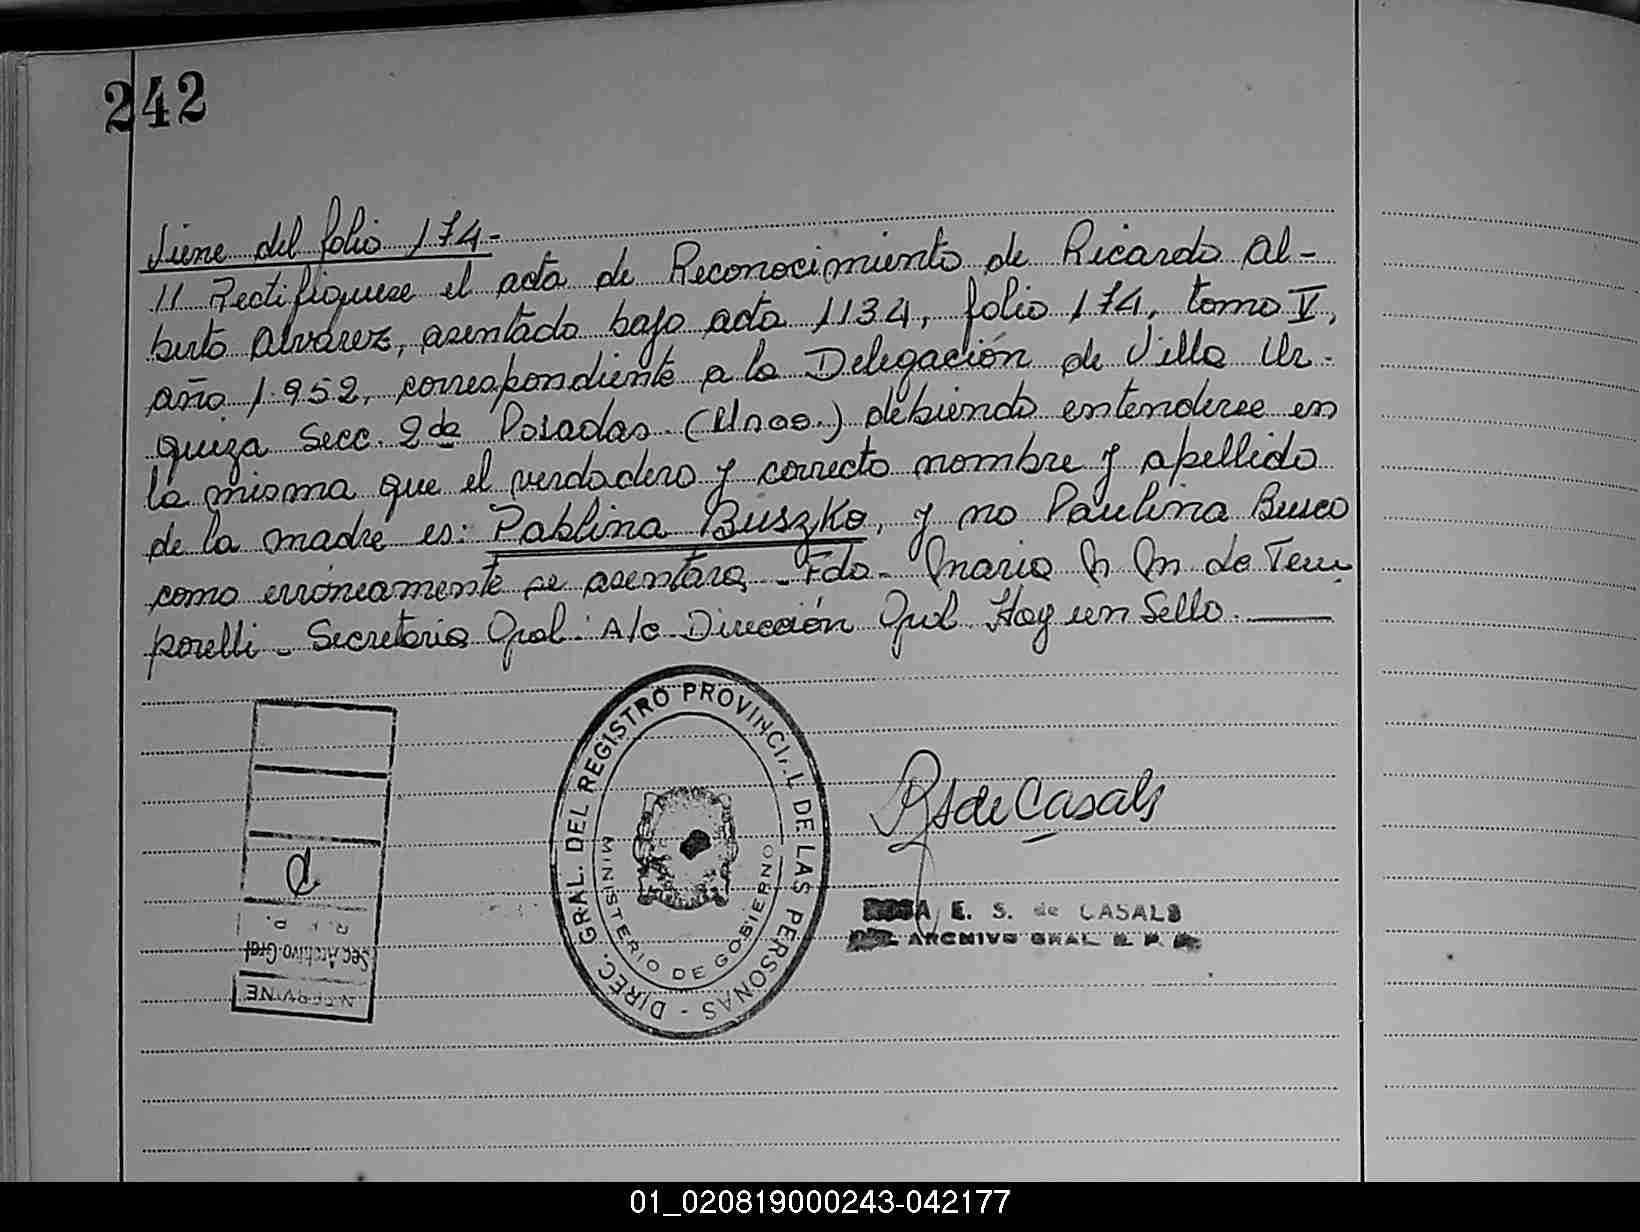 242
Viene del folio 174.-
11 Rectifiquese el acta de Reconocimiento de Ricardo Al-
berto Alvarez, asentado bajo acta 1134, folio 174, tomo V,
año 1.952, correspondiente a la Delegación de Villa Ur-
quiza Secc. 2da Posadas. (Mnes.) debiendo entenderse en
la misma que el verdadero y correcto nombre y apellido
de la madre es: Pablina Buszko, y no Paulina Busco
como erróneamente se asentara. - Fdo. Maria de Tem
porelli - Secretaria Gral. A/c Dirección Gral. Hay un Sello.
DIREC. GRAL. DEL REGISTRO PROVINCI. L DE LAS PERSONAS -
MINISTERIO DE GOBIERNO
RsdeCasals
ROSA E. S. de CASALS
ARCHIVO GRAL. R. P.
R. P.
Sec. Archivo Gral
INTERVINE
01_020819000243-042177